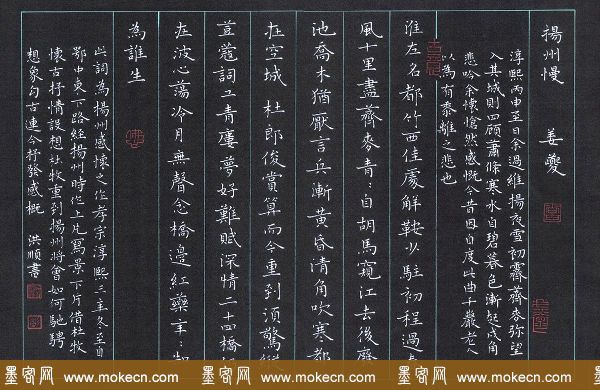 揚州慢 姜夔
淳熙丙申至日余過維揚夜雪初霽薺麥弥望
入其城則四顧蕭條寒水自碧暮色漸起戍角
悲吟余懷愴然感慨今昔因自度此曲千巖老人
以為有黍離之悲也
淮左名都竹西佳處解鞍少駐初程過
風十里盡薺麥青々自胡馬窺江去後廢
池喬木猶厭言兵漸黃昏清角吹寒都
在空城 杜郎俊賞算而今重到須驚
荳蔻詞工青樓夢好難賦深情二十四橋
在波心蕩冷月無聲念橋邊紅藥年々知
為誰生
此詞為揚州感懷之作孝宗淳熙三年冬至自
鄂中東下路經揚州時作上片寫景下片借杜牧
懷古抒情設想杜牧重到揚州將會如何馳騁
想象勾古連今抒發感慨 洪順書
墨客网 www.mokecn.com 墨客网 www.mokecn.com 墨客网 www.mokecn.com